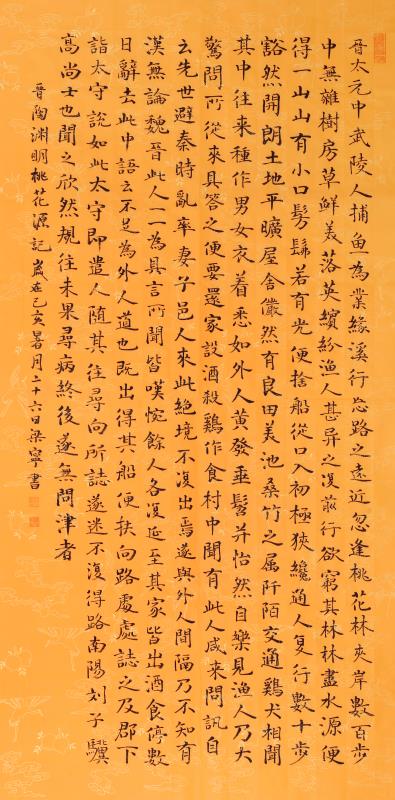 晉太元中武陵人捕魚為業緣溪行忘路之遠近忽逢桃花林夾岸數百步
中無雜樹房草鮮美落英繽紛漁人甚异之復前行欲窮其林林盡水源便
得一山山有小口髣髴若有光便捨船從口入初極狹纔通人复行數十步
豁然開朗土地平曠屋舍儼然有良田美池桑竹之属阡陌交通鷄犬相聞
其中往来種作男女衣着悉如外人黄發垂髫并怡然自樂見漁人乃大
驚問所從來具答之便要還家設酒殺鷄作食村中聞有此人咸来問訊自
云先世避秦時亂率妻子邑人來此絶境不復出焉遂與外人間隔乃不知有
漢無論魏晉此人一一為具言所聞皆嘆惋餘人各復延至其家皆出酒食停數
日辭去此中語云不足為外人道也既出得其船便扶向路處處誌之及郡下
詣太守說如此太守即遣人隨其往尋向所誌遂迷不復得路南陽刘子驥
高尚士也聞之欣然規往未果尋病終後遂無問津者
晉陶淵明桃花源記歲在己亥暑月二十六日梁寧書